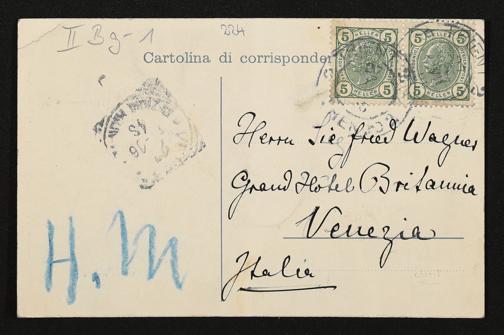 II Bg-1
224
Cartolina di corrisponden
5 5 5 5
HELLER HELLER
5 5 5 5
TRIENT
Herrn Siegfried Wagner
Grand Hôtel Britannia
Venezia
Italia
H. M